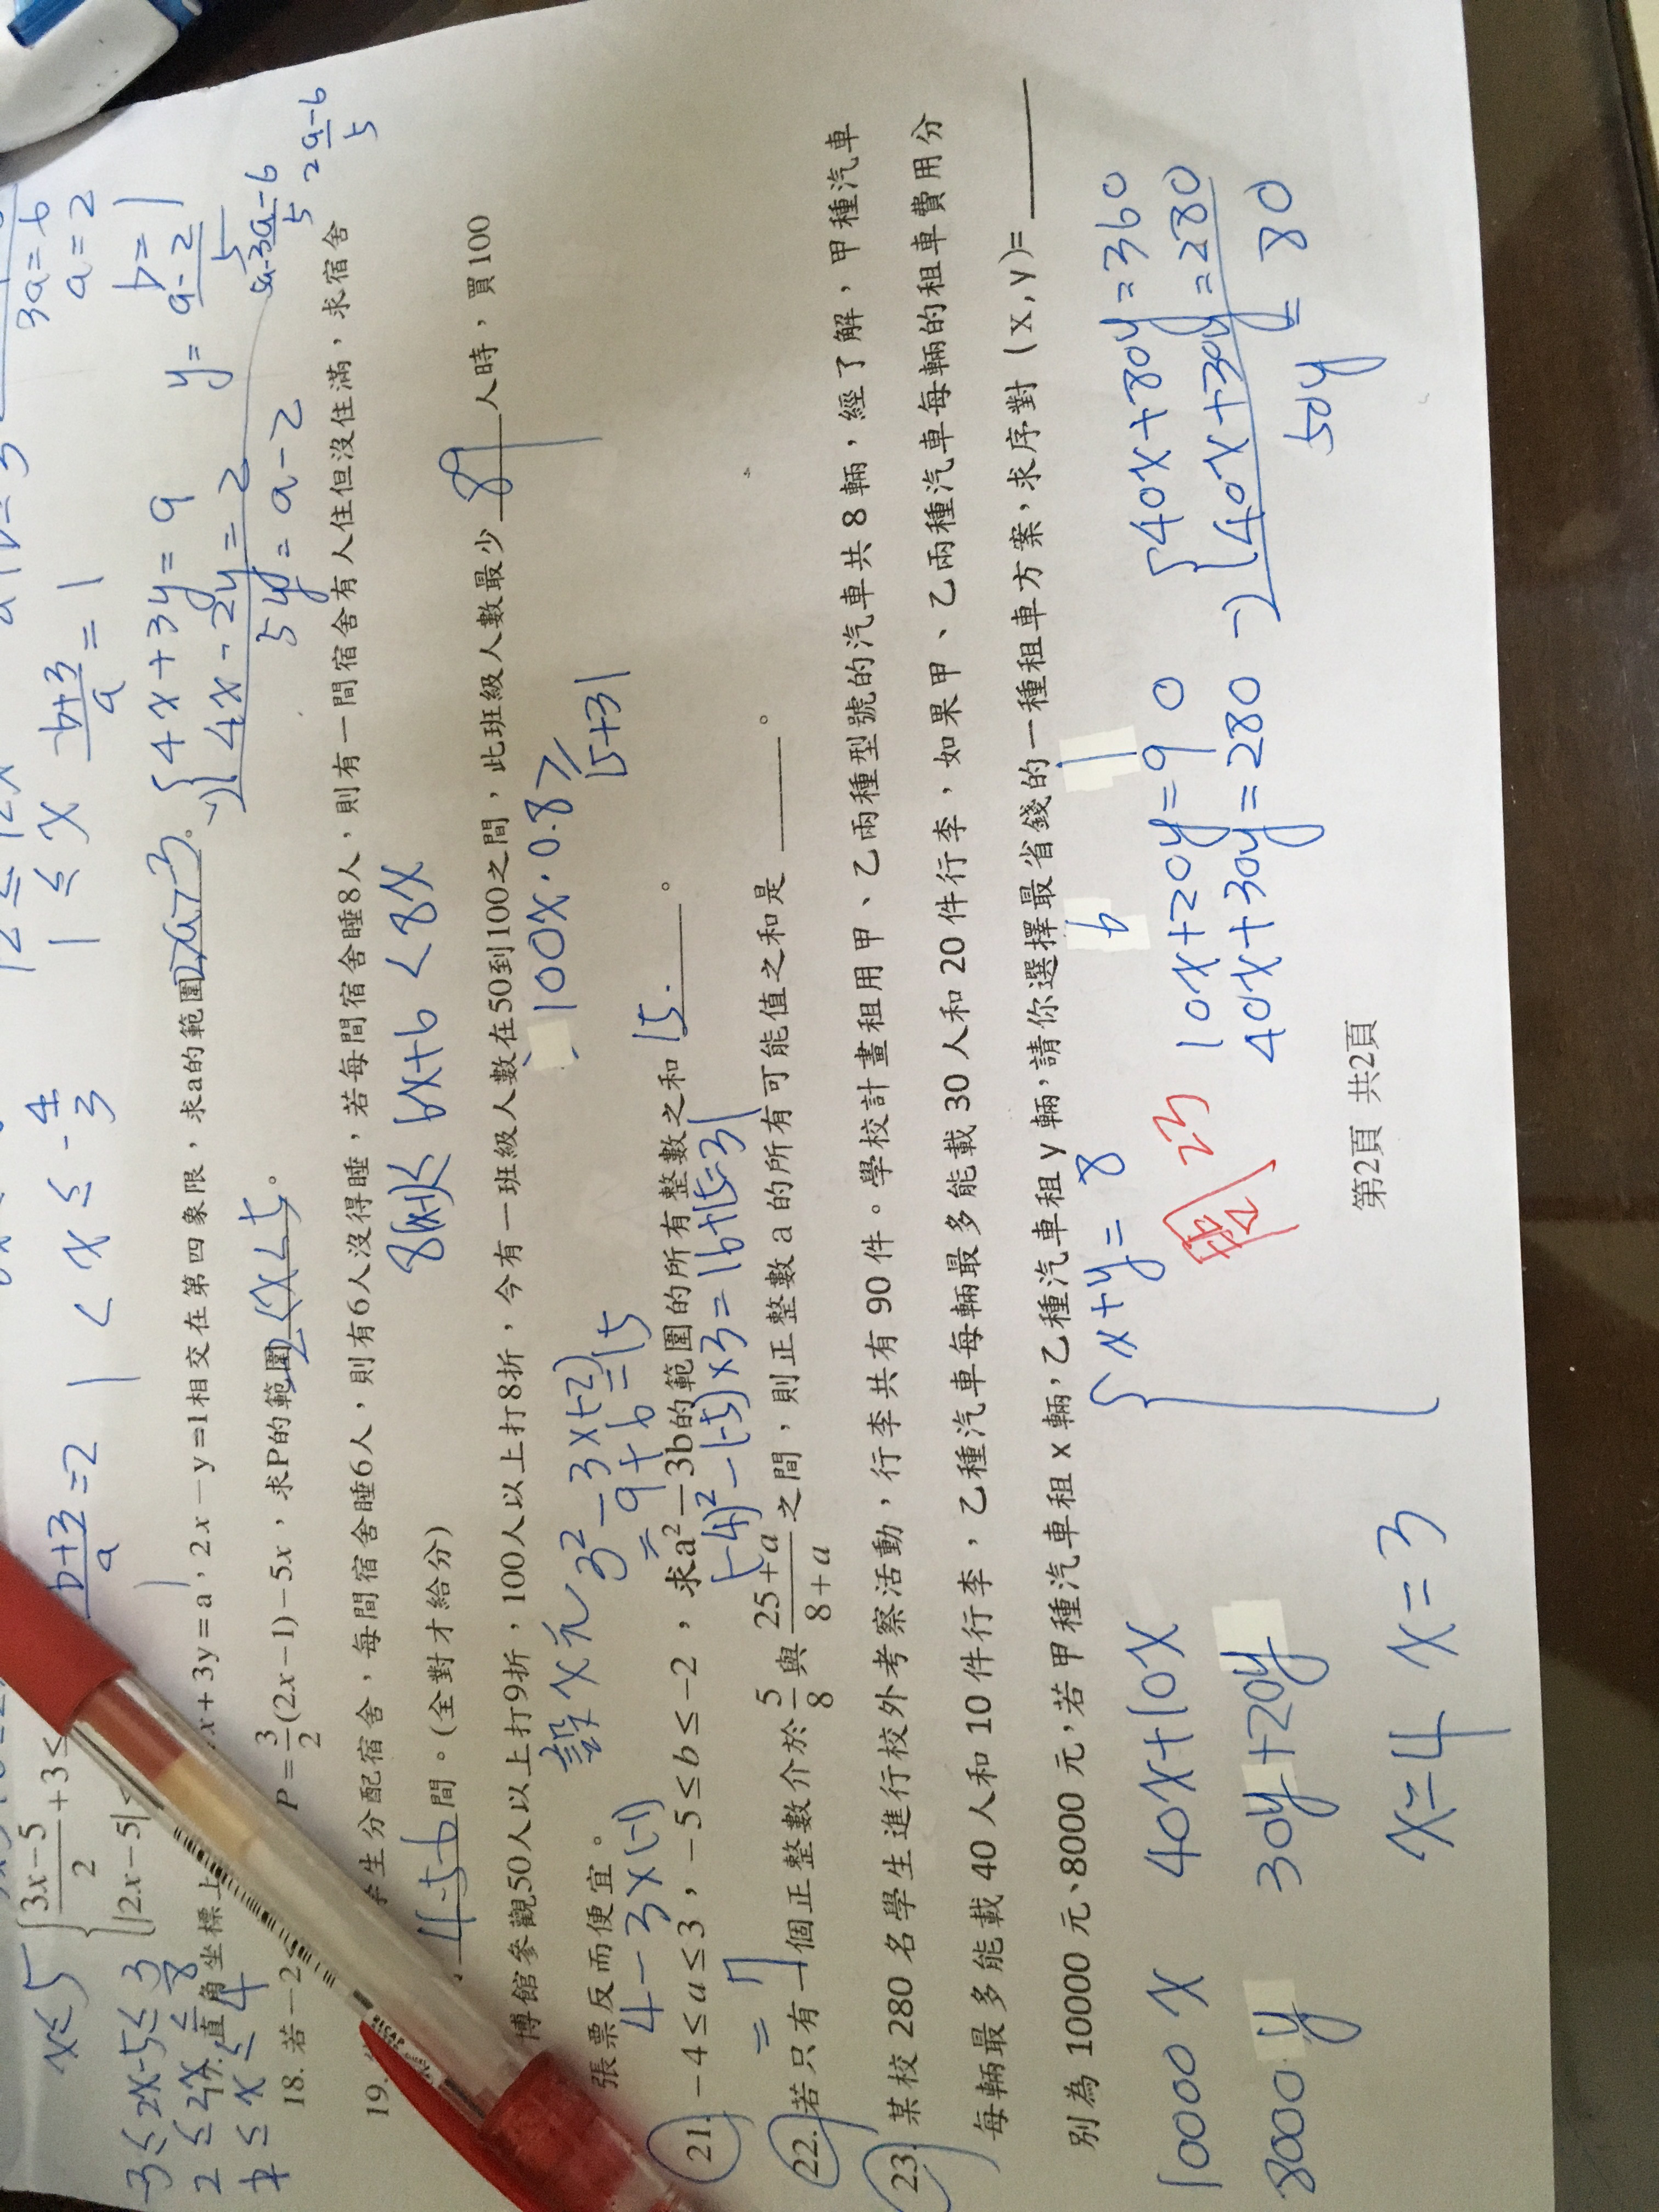 3a=6
a=2
b=1
12≤12x
1≤x
b+3/a=1
b+3/a=2
1<x≤-4/3
x≤5
{3x-5/2+3≤
|2x-5|<
-3≤2x-5≤3
2≤2x≤8
≤x≤4
直角坐標上
x+3y=a，2x-y=1相交在第四象限，求a的範圍
{4x+3y=9
4x-2y=2
5y=a-2
y=a-2/5
2a-6/5
18. 若-2
P=3/2(2x-1)-5x，求P的範圍 。
19.
學生分配宿舍，每間宿舍睡6人，則有6人沒得睡，若每間宿舍睡8人，則有一間宿舍有人住但沒住滿，求宿舍
4.5.6 間。(全對才給分)
6x+6<8x
博館參觀50人以上打9折，100人以上打8折，今有一班級人數在50到100之間，此班級人數最少 89 人時，買100
張票反而便宜。
設x元
100x·0.8≥
3²-3×(-2)
=9+6=15
15+31
4-3×(-1)
=7
21. -4≤a≤3，-5≤b≤-2，求a²-3b的範圍的所有整數之和 15. 。
(-4)²-(-5)×3=16+15=31
22. 若只有一個正整數介於5/8與25+a/8+a之間，則正整數a的所有可能值之和是 。
23. 某校280名學生進行校外考察活動，行李共有90件。學校計畫租用甲、乙兩種型號的汽車共8輛，經了解，甲種汽車
每輛最多能載40人和10件行李，乙種汽車每輛最多能載30人和20件行李，如果甲、乙兩種汽車每輛的租車費用分
別為10000元、8000元，若甲種汽車租x輛，乙種汽車租y輛，請你選擇最省錢的一種租車方案，求序對(x,y)=
10000x 40x+10x
8000y 30y+20y
{x+y=8
10x+20y=90
40x+30y=280
{40x+80y=360
-){40x+30y=280
y=80
50y
x=4 x=3
23
第2頁 共2頁